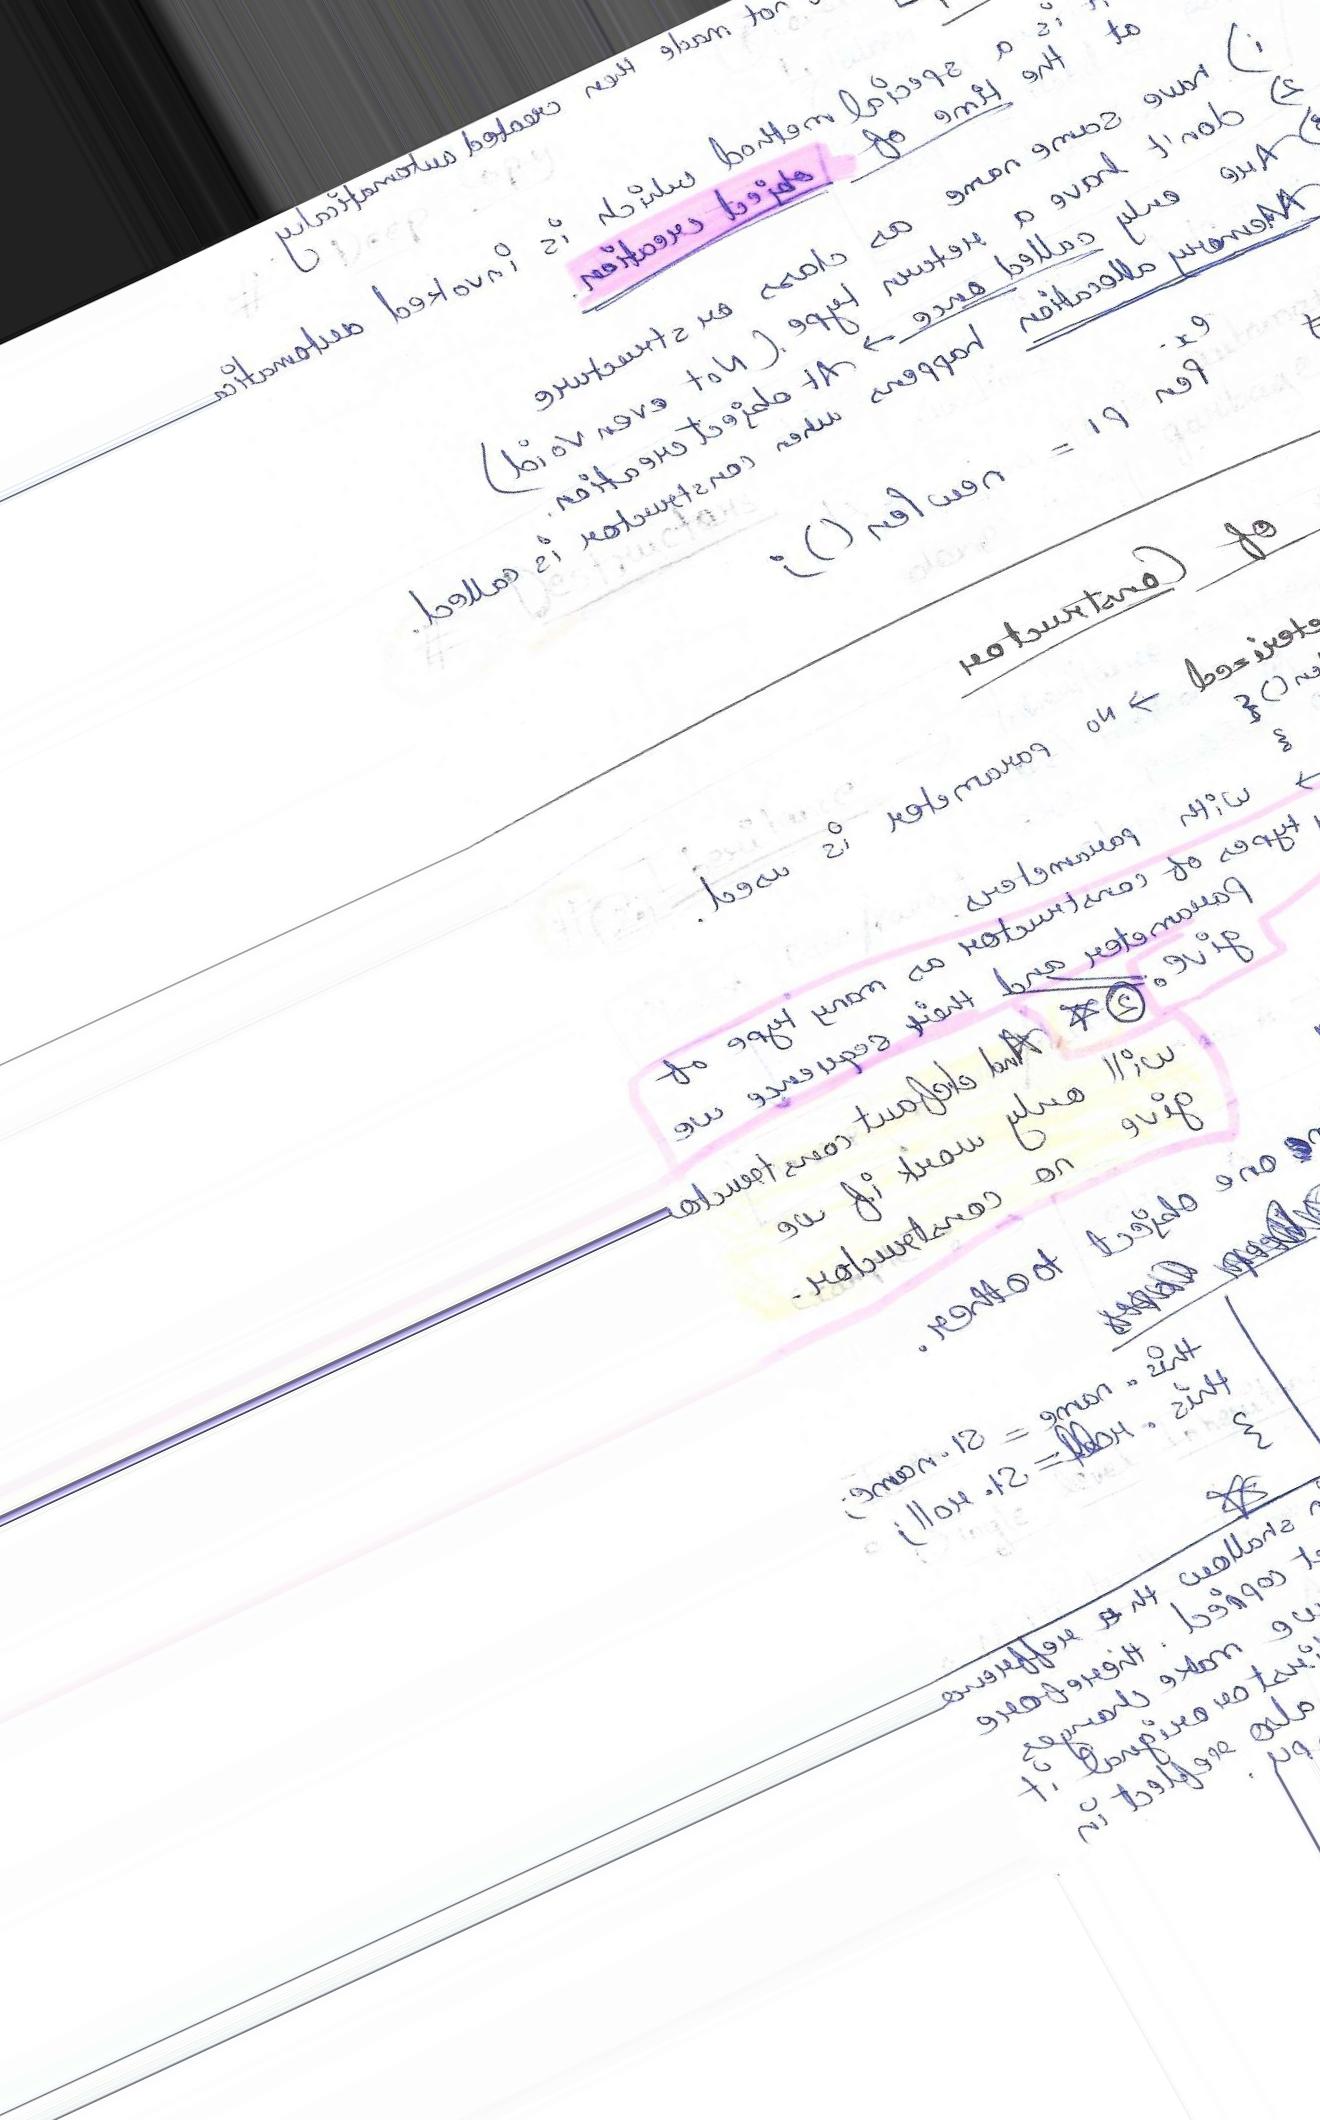 not made then created automatically.
it is a special method which is invoked automatica
at the time of object creation.
1) have same name as class or structure
2) don't have a return type. (Not even void)
3) Are only called once → At object creation.
Memory allocation happens when constructor is called.
ex.
Pen P1 = new Pen();
of Constructor
→ No parameter is used.
{
}
→ with parameters.
types of constructor as many type of
parameter and their sequence we
give.
② * And defaut constructor
will only work if we
give no constructor.
one object to other.
this.name = S1.name;
this.roll = S1.roll;
}
shallow the refference
copied. therefore
we make changes
original it
also reflect in